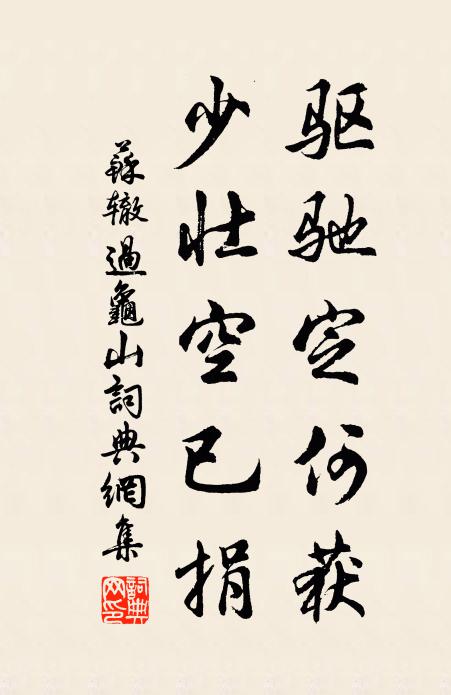 驱驰定何获
少壮空已捐
蘇辙過龜山詞典網集
詞典网印